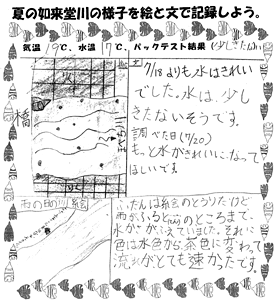 夏の如来堂川の様子を絵と文で記録しよう。
気温 19℃、水温 17℃、パックテスト結果(少しきたない)
7/18よりも水はきれい
でした。水は、少し
きたないそうです。
調べた日(7/20)
もっと水がきれいになって
ほしいです
橋
雨の日の川 絵
ふだんは絵のとうりだけど
雨がふると のところまで、
水かさがふえていました。それに
色は水色から茶色に変わって
流れがとても速かったです。